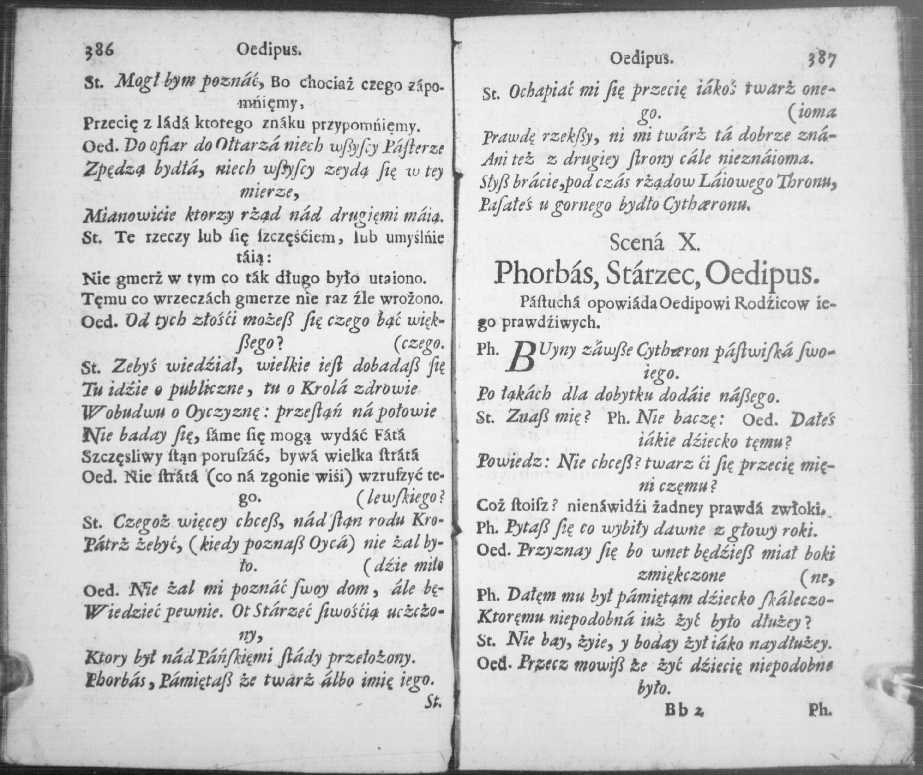 386 Oedipus.
St. Mogł bym poznáć, Bo chociaż czego zápo-
mńięmy,
Przecię z ládá ktorego znáku przypomńięmy.
Oed. Do ofiar do Ołtarzá niech wſzyſcy Páſterze
Zpędzą bydłá, niech wſzyſcy zeydą ſię w tey
mierze,
Mianowićie ktorzy rząd nád drugięmi máią.
St. Te rzeczy lub ſię ſzczęśćiem, lub umyślńie
táią:
Nie gmerż w tym co ták długo było utaiono.
Tęmu co wrzeczách gmerze nie raz źle wrożono.
Oed. Od tych złośći możeß ſię czego bąć więk-
ßego? (czego.
St. Zebyś wiedźiał, wielkie ieſt dobadaß ſię
Tu idźie o publiczne, tu o Krolá zdrowie
Wobudwu o Oyczyznę: przeſtąń ná połowie
Nie baday ſię, ſáme ſię mogą wydáć Fátá
Szczęsliwy ſtąn poruſzáć, bywá wielka ſtrátá
Oed. Nie ſtrátá (co ná zgonie wiśi) wzruſzyć te-
go. (lewſkiego?
St. Czegoż więcey chceß, nád ſtąn rodu Kro-
Pátrż żebyć, (kiedy poznaß Oycá) nie żal by-
ło. (dźie miło
Oed. Nie żal mi poznáć ſwoy dom, ále bę-
Wiedźieć pewnie. Ot Stárzeć ſiwośćią uczćżo-
ny,
Ktory był nád Páńſkięmi ſtády przełożony.
Phorbás, Pámiętaß że twarż álbo imię iego.
St.
Oedipus. 387
St. Ochapiáć mi ſię przecię iákoś twarż one-
go. (ioma
Prawdę rzekßy, ni mi twárż tá dobrze zná-
Ani też z drugiey ſtrony cále nieznáioma.
Słyß bráćie, pod czás rżądow Láiowego Thronu,
Paſałeś u gornego bydło Cythæronu.
Scená X.
Phorbás, Stárzec, Oedipus.
Páſtuchá opowiáda Oedipowi Rodźicow ie-
go prawdźiwych.
Ph. BUyny záwße Cythæron páſtwiſká ſwo-
iego.
Po łąkách dla dobytku dodáie náßego.
St. Znaß mię? Ph. Nie baczę: Oed. Dałeś
iákie dźiecko tęmu?
Powiedz: Nie chceß? twarz ći ſię przecię mię-
ni częmu?
Coż ſtoiſz? nienáwidźi żadney prawdá zwłoki.
Ph. Pytaß ſię co wybiły dawne z głowy roki.
Oed. Przyznay ſię bo wnet będźieß miał boki
zmiękczone (ne,
Ph. Dałęm mu był pámiętąm dźiecko ſkáleczo-
Ktoręmu niepodobná iuż żyć było dłużey?
St. Nie bay, żyie, y boday żył iáko naydłużey.
Oed. Przecz mowiß że żyć dźiećię niepodobne
było.
Bb 2 Ph.